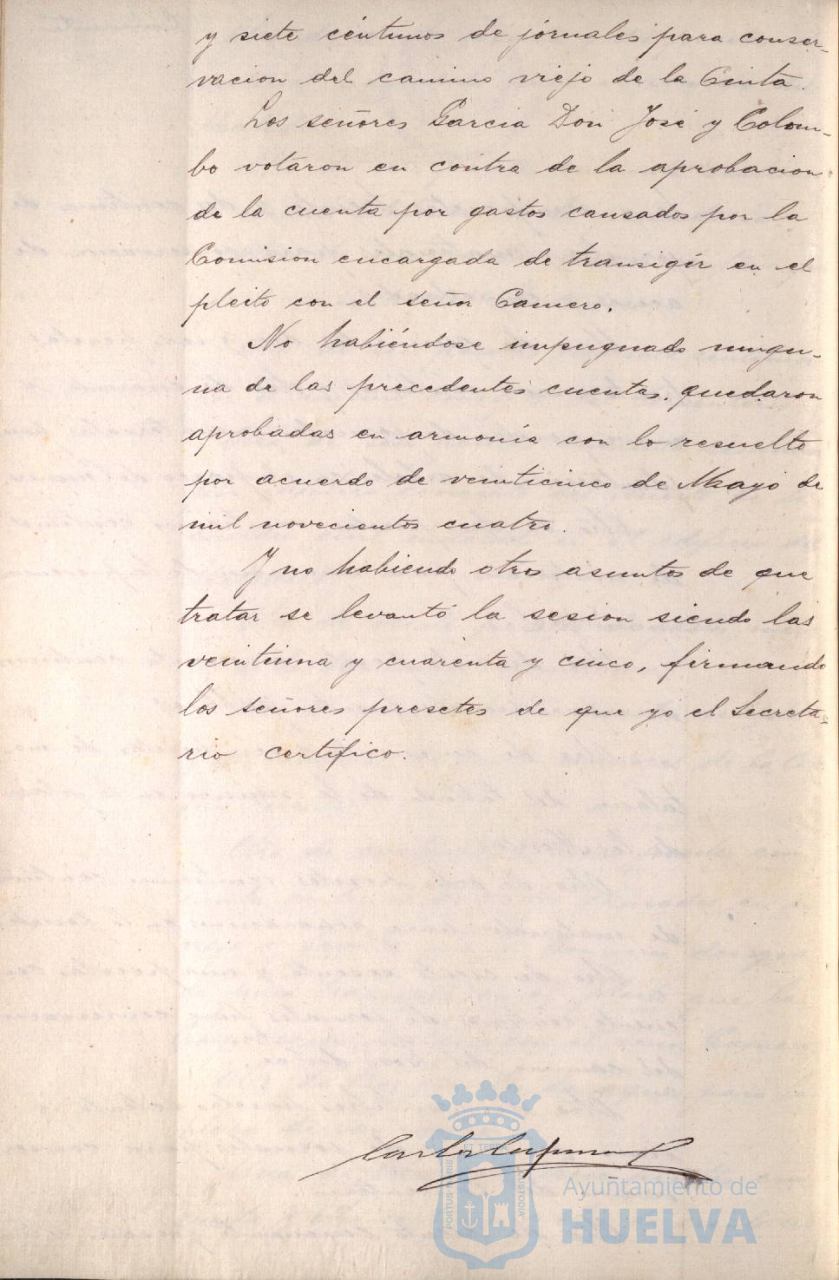 y siete céntimos de jornales para conser-
vacion del camino viejo de la Cinta.
Los señores Garcia Don José y Colom-
bo votaron en contra de la aprobacion
de la cuenta por gastos causados por la
Comision encargada de transigir en el
pleito con el señor Camero.
No habiéndose impugnado ningu-
na de las precedentes cuentas, quedaron
aprobadas en armonía con lo resuelto
por acuerdo de veinticinco de Mayo de
mil novecientos cuatro.
Y no habiendo otros asuntos de que
tratar se levantó la sesion siendo las
veintiuna y cuarenta y cinco, firmando
los señores presetes de que yo el Secreta-
rio certifico.
PORTUS
CUSTODIA
Ayuntamiento de
HUELVA